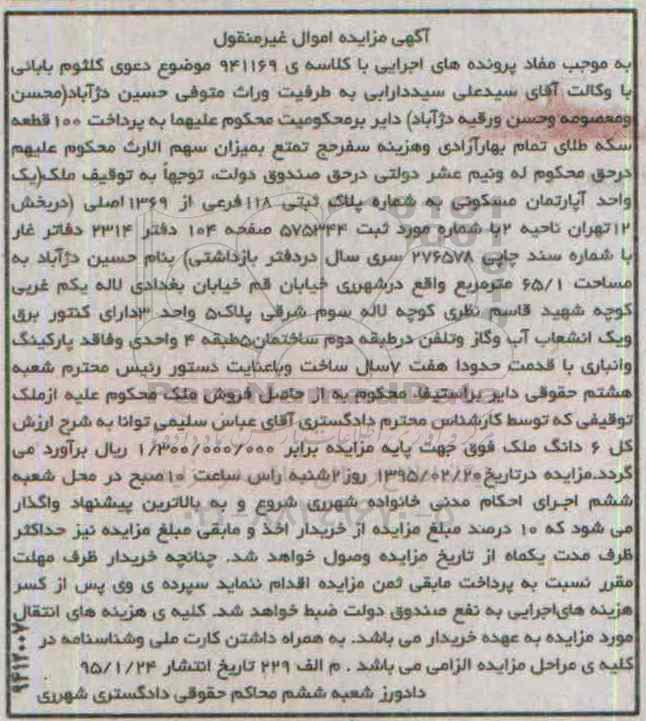 آگهی مزایده اموال غیرمنقول
به موجب مفاد پرونده های اجرایی با کلاسه ی ۹۴۱۱۶۹ موضوع دعوی کلثوم بابائی
با وکالت آقای سیدعلی سیددارابی به طرفیت وراث متوفی حسین دژآباد(محسن
ومعصومه وحسن ورقیه دژآباد) دایر برمحکومیت محکوم علیهما به پرداخت ۱۰۰ قطعه
سکه طلای تمام بهارآزادی وهزینه سفرحج تمتع بمیزان سهم الارث محکوم علیهم
درحق محکوم له ونیم عشر دولتی درحق صندوق دولت، توجهاً به توقیف ملک(یک
واحد آپارتمان مسکونی به شماره پلاک ثبتی ۱۱۸فرعی از ۱۳۶۹اصلی (دربخش
۱۲تهران ناحیه ۲با شماره مورد ثبت ۵۷۵۳۴۴ صفحه ۱۰۴ دفتر ۲۳۱۴ دفاتر غار
با شماره سند چاپی ۲۷۶۵۷۸ سری سال دردفتر بازداشتی) بنام حسین دژآباد به
مساحت ۶۵/۱ مترمربع واقع درشهرری خیابان قم خیابان بغدادی لاله یکم غربی
کوچه شهید قاسم نظری کوچه لاله سوم شرقی پلاک۵ واحد ۳دارای کنتور برق
ویک انشعاب آب وگاز وتلفن درطبقه دوم ساختمان۵طبقه ۴ واحدی وفاقد پارکینگ
وانباری با قدمت حدودا هفت ۷سال ساخت وباعنایت دستور رئیس محترم شعبه
هشتم حقوقی دایر براستیفاء محکوم به از حاصل فروش ملک محکوم علیه ازملک
توقیفی که توسط کارشناس محترم دادگستری آقای عباس سلیمی توانا به شرح ارزش
کل ۶ دانگ ملک فوق جهت پایه مزایده برابر ۱/۳۰۰/۰۰۰/۰۰۰ ریال برآورد می
گردد.مزایده درتاریخ۱۳۹۵/۰۲/۲۰ روز۲شنبه راس ساعت ۱۰صبح در محل شعبه
ششم اجرای احکام مدنی خانواده شهرری شروع و به بالاترین پیشنهاد واگذار
می شود که ۱۰ درصد مبلغ مزایده از خریدار اخذ و مابقی مبلغ مزایده نیز حداکثر
ظرف مدت یکماه از تاریخ مزایده وصول خواهد شد. چنانچه خریدار ظرف مهلت
مقرر نسبت به پرداخت مابقی ثمن مزایده اقدام ننماید سپرده ی وی پس از کسر
هزینه هایاجرایی به نفع صندوق دولت ضبط خواهد شد. کلیه ی هزینه های انتقال
مورد مزایده به عهده خریدار می باشد. به همراه داشتن کارت ملی وشناسنامه در
کلیه ی مراحل مزایده الزامی می باشد . م الف ۲۲۹ تاریخ انتشار ۹۵/۱/۲۴
دادورز شعبه ششم محاکم حقوقی دادگستری شهرری
۹۴۱۲۰۰۷